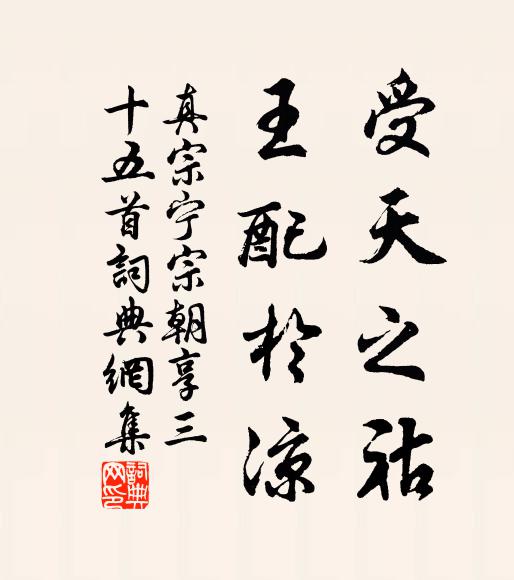 受天之祜
王配於凉
真宗宁宗朝享三
十五首詞典網集
詞典
网印